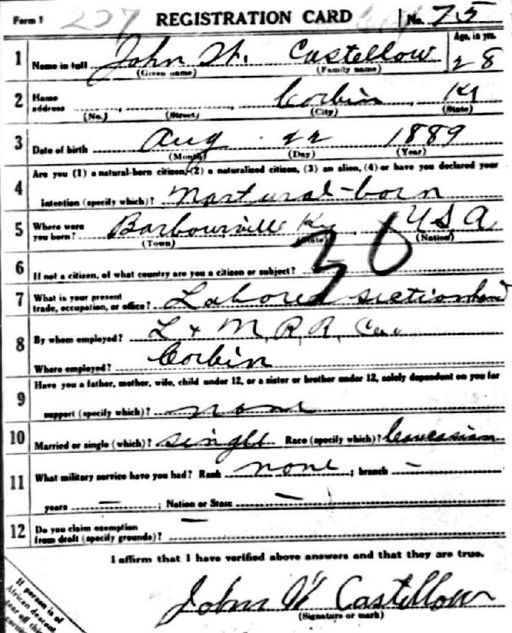 Form 1 REGISTRATION CARD No. 75
Age, in yrs.
1 Name in full John W. Castellow 28
(Given name) (Family name)
2 Home address Corbin Ky
(No.) (Street) (City) (State)
3 Date of birth Aug 22 1889
(Month) (Day) (Year)
Are you (1) a natural-born citizen, (2) a naturalized citizen, (3) an alien, (4) or have you declared your
4 intention (specify which)? Natural-born
5 Where were you born? Barbourville Ky USA
(Town) (State) (Nation)
36
6 If not a citizen, of what country are you a citizen or subject?
7 What is your present trade, occupation, or office? Laborer section hand
8 By whom employed? L & N R.R. Co.
Where employed? Corbin
9 Have you a father, mother, wife, child under 12, or a sister or brother under 12, solely dependent on you for
support (specify which)? none
10 Married or single (which)? single Race (specify which)? Caucasian
11 What military service have you had? Rank none ; branch —
years — ; Nation or State —
12 Do you claim exemption from draft (specify grounds)? —
I affirm that I have verified above answers and that they are true.
John W Castellow
(Signature or mark)
If person is of
African descent
tear off this